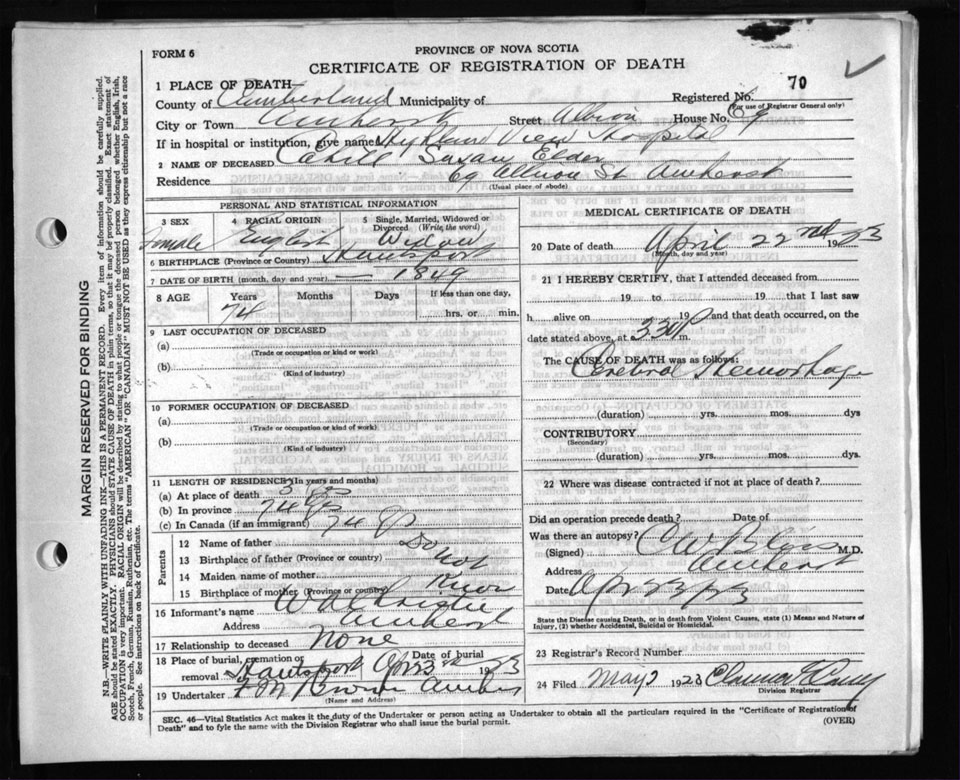 FORM 6
PROVINCE OF NOVA SCOTIA
CERTIFICATE OF REGISTRATION OF DEATH
70
1 PLACE OF DEATH
Registered No.
(For use of Registrar General only)
County of Cumberland Municipality of
City or Town Amherst Street Albion House No. 69
If in hospital or institution, give name Highland View Hospital
2 NAME OF DECEASED Cahill Susan Elder
Residence 69 Albion St Amherst
(Usual place of abode)
PERSONAL AND STATISTICAL INFORMATION
3 SEX 4 RACIAL ORIGIN 5 Single, Married, Widowed or Divorced (Write the word)
Female English Widow
6 BIRTHPLACE (Province or Country) Hantsport
7 DATE OF BIRTH (month, day and year) — 1849
8 AGE Years Months Days If less than one day,
74 hrs. or min.
9 LAST OCCUPATION OF DECEASED
(a)
(Trade or occupation or kind of work)
(b)
(Kind of industry)
10 FORMER OCCUPATION OF DECEASED
(a)
(Trade or occupation or kind of work)
(b)
(Kind of industry)
11 LENGTH OF RESIDENCE (In years and months)
(a) At place of death 3 yrs
(b) In province 74 yrs
(c) In Canada (if an immigrant) 74 yrs
Parents
12 Name of father Do
13 Birthplace of father (Province or country) not
14 Maiden name of mother
15 Birthplace of mother (Province or country) Know
16 Informant's name
Address Amherst
17 Relationship to deceased None
18 Place of burial, cremation or removal Date of burial
Hantsport Apr 23rd 1923
19 Undertaker Brown Amherst
(Name and Address)
MEDICAL CERTIFICATE OF DEATH
20 Date of death April 22nd 1923
(Month, day and year)
21 I HEREBY CERTIFY, that I attended deceased from
19 to 19 that I last saw
h alive on 19 and that death occurred, on
date stated above, at 330 P m.
The CAUSE OF DEATH was as follows:
Cerebral Hemorrhage
(duration) yrs. mos. dys
CONTRIBUTORY
(Secondary)
(duration) yrs. mos. dys.
22 Where was disease contracted if not at place of death?
Did an operation precede death? Date of
Was there an autopsy?
(Signed) M.D.
Address Amherst
Date Apr 23/23
State the Disease causing Death, or in death from Violent Causes, state (1) Means and Nature of Injury, (2) whether Accidental, Suicidal or Homicidal.
23 Registrar's Record Number
24 Filed May 2 1923
Division Registrar
SEC. 46—Vital Statistics Act makes it the duty of the Undertaker or person acting as Undertaker to obtain all the particulars required in the "Certificate of Registration of
Death" and to fyle the same with the Division Registrar who shall issue the burial permit.
(OVER)
MARGIN RESERVED FOR BINDING
N.B.—WRITE PLAINLY WITH UNFADING INK—THIS IS A PERMANENT RECORD. Every item of information should be carefully supplied.
AGE should be stated EXACTLY. PHYSICIANS should STATE CAUSE OF DEATH in plain terms, so that it may be properly classified. Exact statement of
OCCUPATION is very important. RACIAL ORIGIN will be described by stating to what people or tongue the deceased person belonged whether English, Irish,
Scotch, French, German, Russian, Ruthenian, etc. The terms "AMERICAN" OR "CANADIAN" MUST NOT BE USED as they express citizenship but not a race
or people. See instructions on back of Certificate.